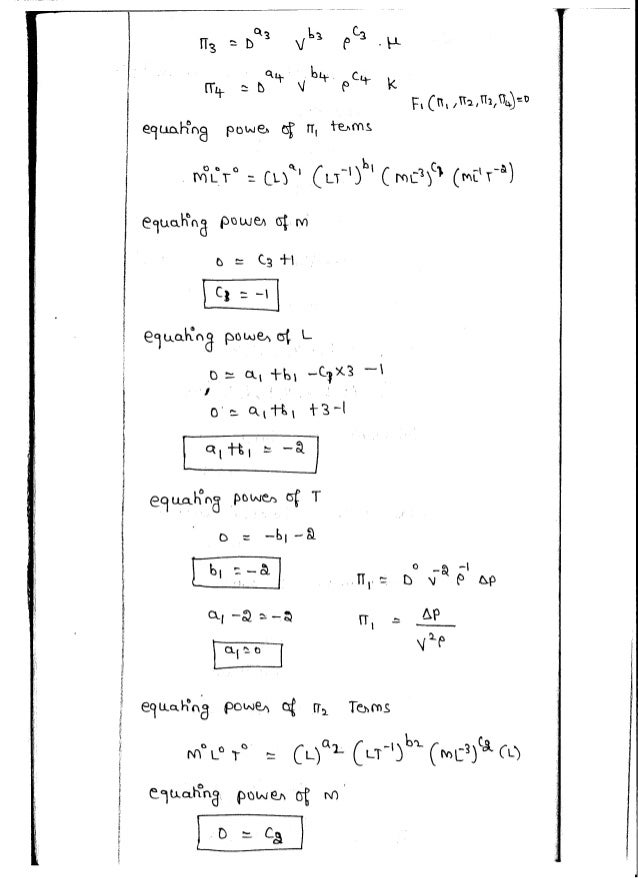 Π3 = D^a3 V^b3 ρ^C3 . μ
Π4 = D^a4 V^b4 ρ^C4 K
F1 (Π1, Π2, Π3, Π4) = 0
equating power of Π1 terms
M°L°T° = (L)^a1 (LT^-1)^b1 (ML^-3)^C3 (ML^-1 T^-2)
equating power of M
0 = C3 +1
C3 = -1
equating power of L
0 = a1 +b1 -C3×3 -1
0 = a1 +b1 +3-1
a1 +b1 = -2
equating power of T
0 = -b1 -2
b1 = -2
Π1 = D° V^-2 ρ^-1 Δp
a1 -2 = -2
Π1 = ΔP / V²ρ
a1 = 0
equating power of Π2 Terms
M°L°T° = (L)^a2 (LT^-1)^b2 (ML^-3)^C2 (L)
equating power of M
0 = C2